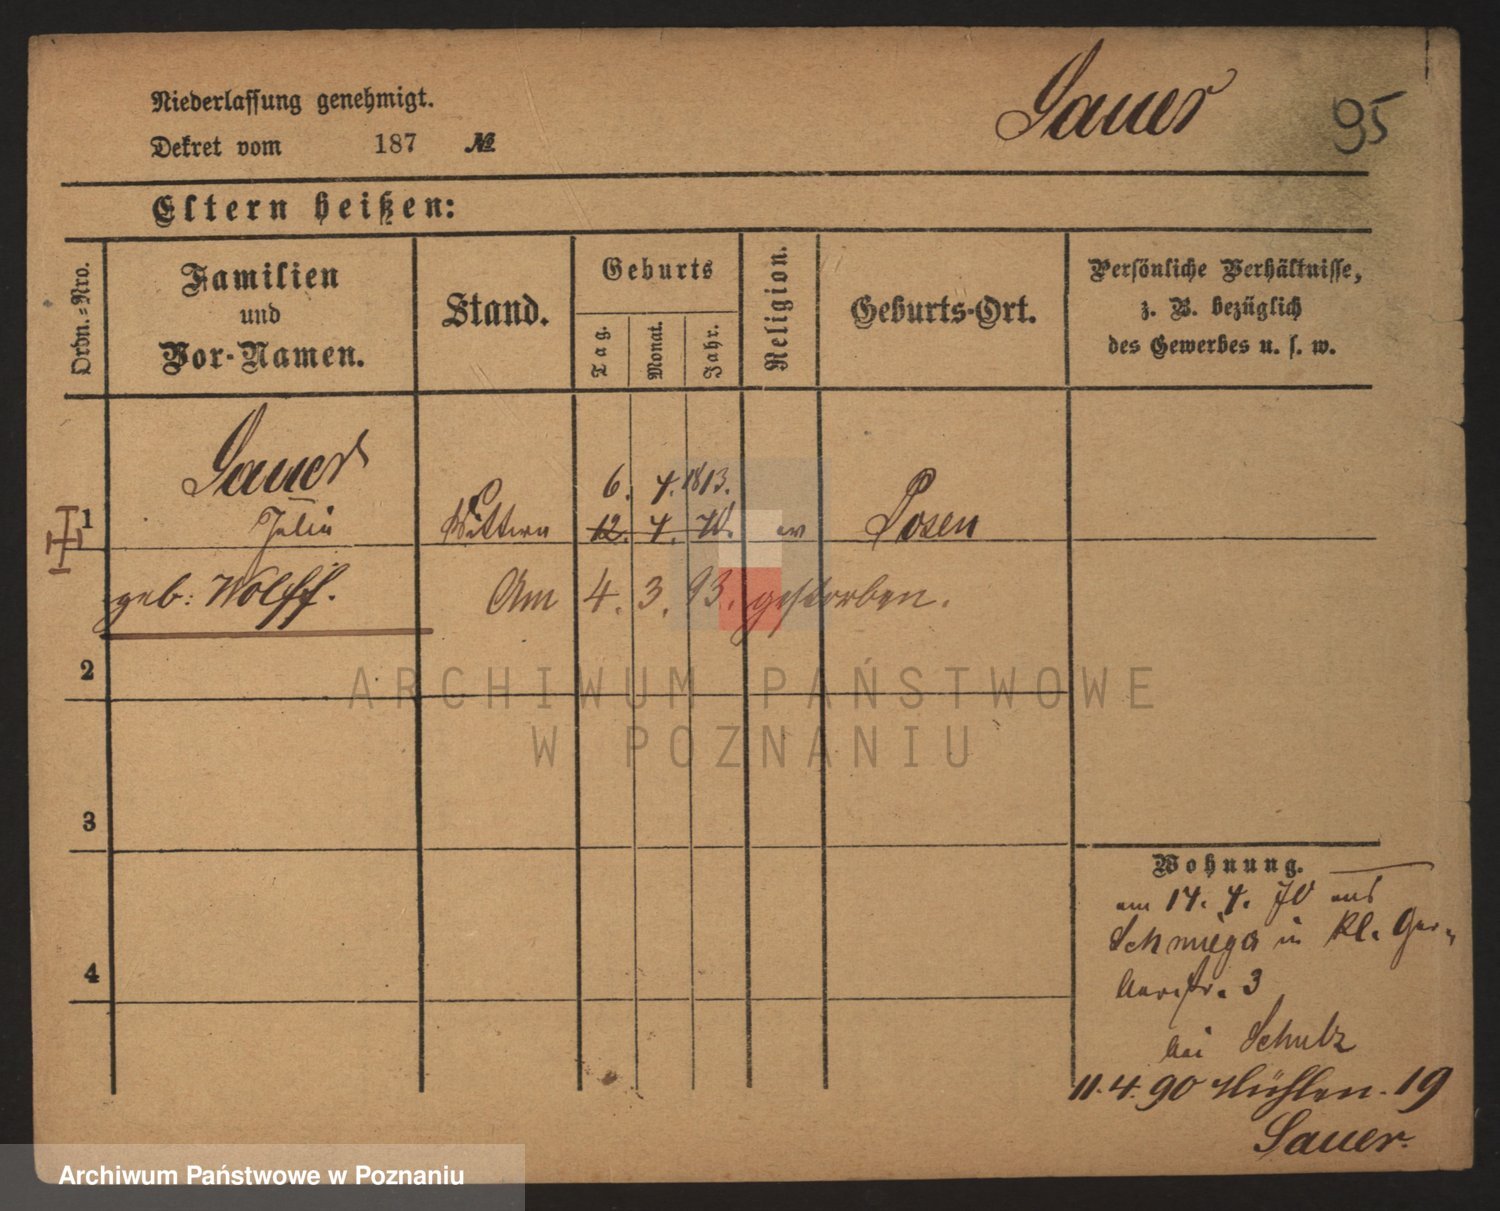 Niederlassung genehmigt.
Dekret vom 187 №
Sauer
95
Eltern heißen:
Ordn.-Nro.
Familien
und
Vor-Namen.
Stand.
Geburts
Tag.
Monat.
Jahr.
Religion.
Geburts-Ort.
Persönliche Verhältnisse,
z. B. bezüglich
des Gewerbes u. s. w.
Sauer
6. 4. 1813.
1 Julie 12. 4. 70. ev Posen
geb: Wolff. Am 4. 3. 93. gestorben.
2
3
4
Wohnung.
am 14. 4. 70 aus
Schmiegel in Kl. Ger-
berstr. 3
bei Schulz
11.4.90 Mühlen. 19
Sauer.
ARCHIWUM PAŃSTWOWE
W POZNANIU
Archiwum Państwowe w Poznaniu